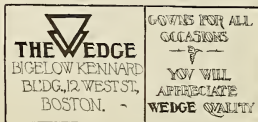 THE WEDGE
BIGELOW KENNARD
BLDG., 12 WEST ST.,
BOSTON.
GOWNS FOR ALL
OCCASIONS
YOU WILL
APPRECIATE
WEDGE QUALITY